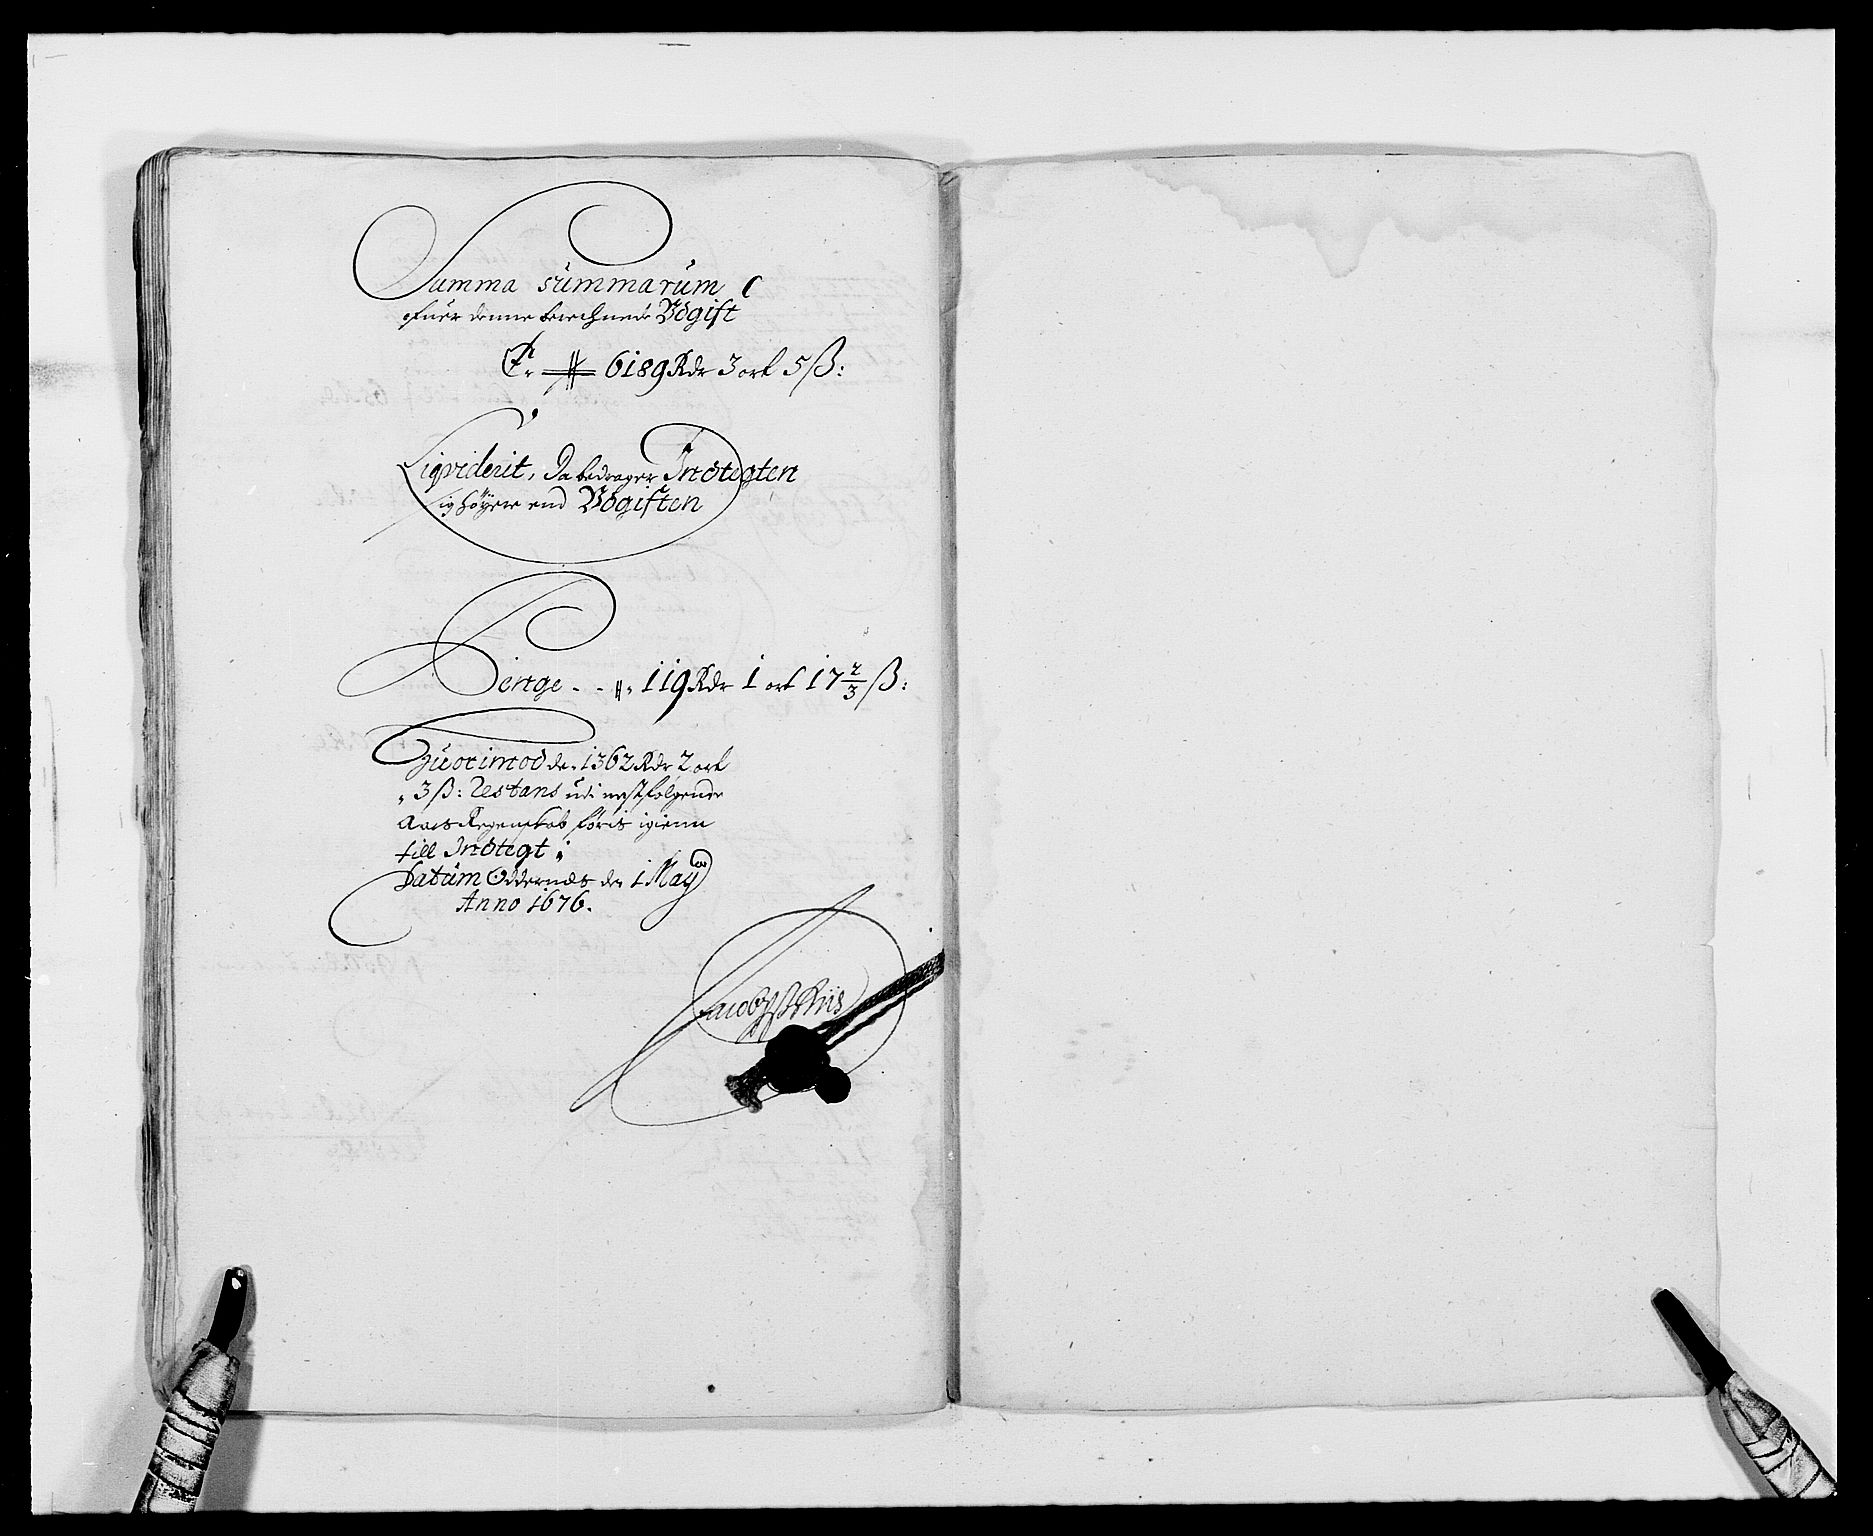 Summa summarum
ofuer denne berechnede Vdgift
Er 6189 Rdr 3 ort 5 ß:
Liqviderit, Da bedrager Indtegten
sig høyere end Vdgiften
Penge - - 119 Rdr 1 ort 17 2/3 ß:
Huorimod de 1362 Rdr 2 ort
3 ß: Restans udi nestfølgende
Aars Regenskab føris igienn
till Indtegt;
Datum Oddernæs den 1 May
Anno 1676.
Riis